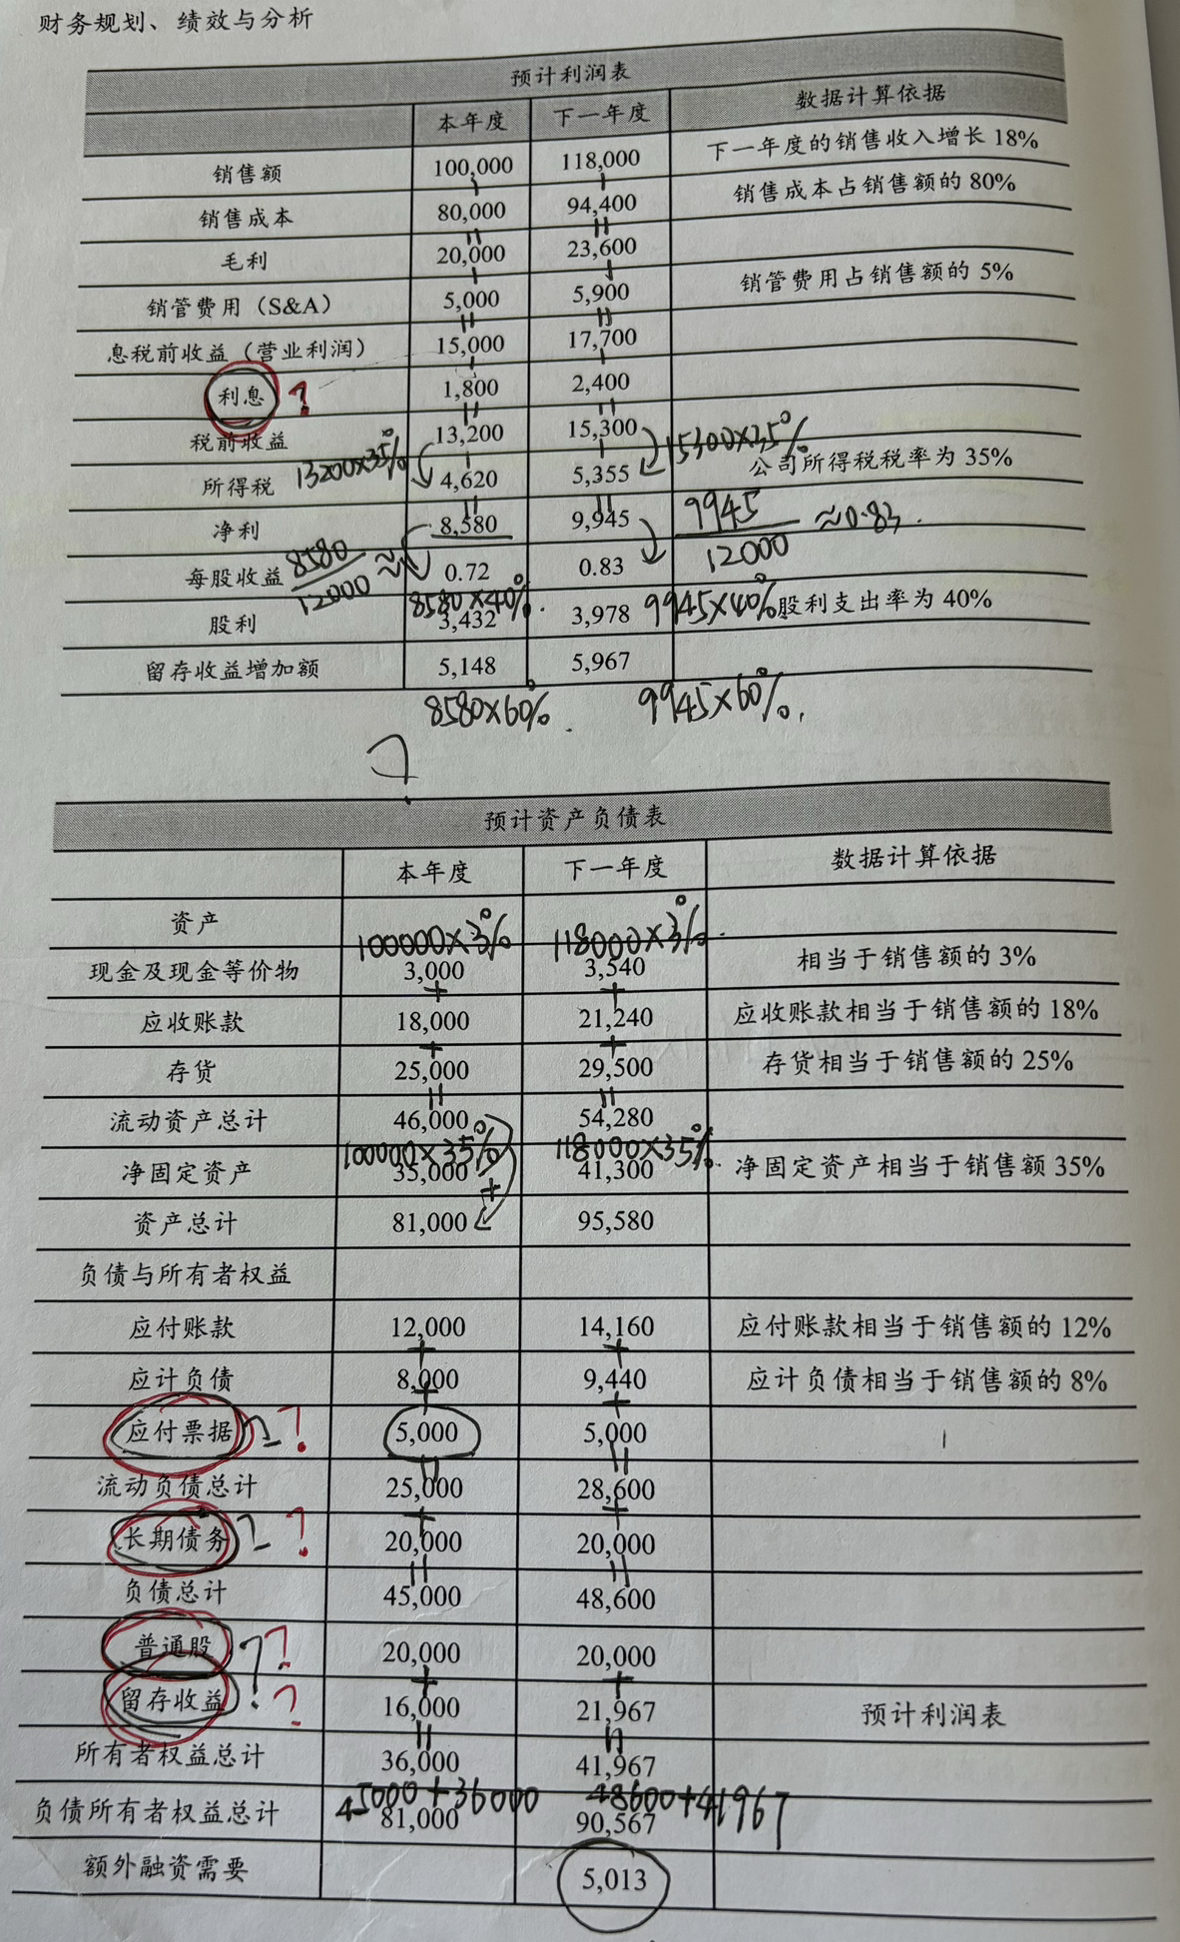 财务规划、绩效与分析
预计利润表
本年度 下一年度 数据计算依据
销售额 100,000 118,000 下一年度的销售收入增长 18%
销售成本 80,000 94,400 销售成本占销售额的 80%
毛利 20,000 23,600
销管费用（S&A） 5,000 5,900 销管费用占销售额的 5%
息税前收益（营业利润） 15,000 17,700
利息 ? 1,800 2,400
税前收益 13,200 15,300
13200×35% 15300×35%
所得税 4,620 5,355 公司所得税税率为 35%
净利 8,580 9,945
8580/12000≈ 9945/12000 ≈0.83.
每股收益 0.72 0.83
8580×40%. 9945×40%
股利 3,432 3,978 股利支出率为 40%
留存收益增加额 5,148 5,967
8580×60%. 9945×60%.
?
预计资产负债表
本年度 下一年度 数据计算依据
资产
100000×3% 118000×3%.
现金及现金等价物 3,000 3,540 相当于销售额的 3%
+ +
应收账款 18,000 21,240 应收账款相当于销售额的 18%
+ +
存货 25,000 29,500 存货相当于销售额的 25%
流动资产总计 46,000 54,280
100000×35% 118000×35%.
净固定资产 35,000 41,300 净固定资产相当于销售额 35%
+
资产总计 81,000 95,580
负债与所有者权益
应付账款 12,000 14,160 应付账款相当于销售额的 12%
+ +
应计负债 8,000 9,440 应计负债相当于销售额的 8%
+ +
应付票据 ? 5,000 5,000
流动负债总计 25,000 28,600
+ +
长期债务 ? 20,000 20,000
负债总计 45,000 48,600
普通股 ?? 20,000 20,000
+ +
留存收益 ? 16,000 21,967 预计利润表
所有者权益总计 36,000 41,967
45000+36000 48600+41967
负债所有者权益总计 81,000 90,567
额外融资需要 5,013